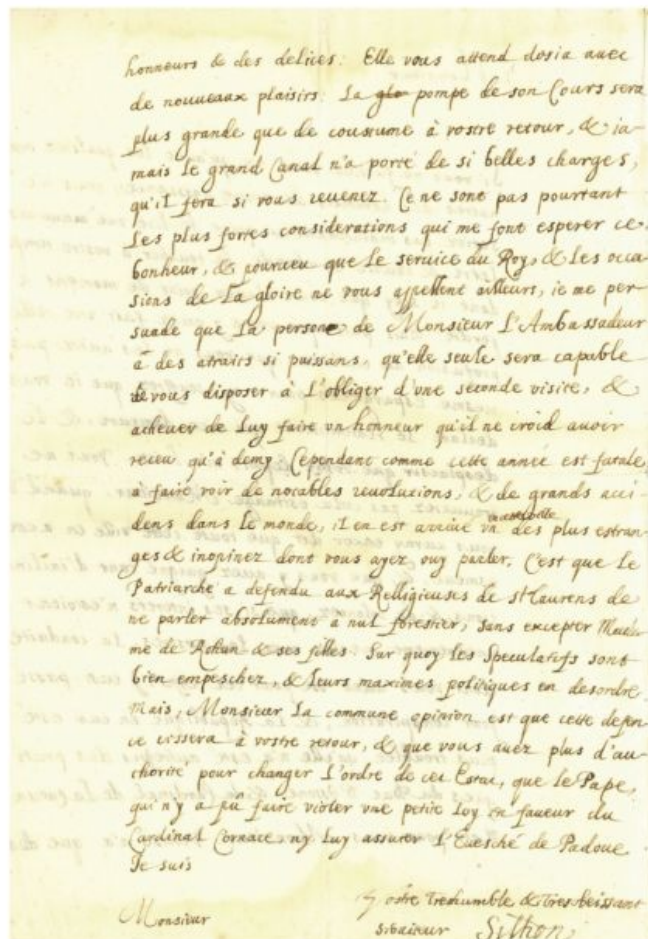 honneurs & des delices: Elle vous attend desia avec
de nouveaux plaisirs: La glo pompe de son Cours sera
plus grande que de coustume à vostre retour, & ia-
mais le grand Canal n'a porté de si belles charges,
qu'il fera si vous revenez. Ce ne sont pas pourtant
les plus fortes considerations qui me font esperer ce
bonheur, & pourveu que le service du Roy, & les occa-
sions de la gloire ne vous appellent ailleurs, ie me per-
suade que la persone de Monsieur L'Ambassadeur
à des atraits si puissans, qu'elle seule sera capable
de vous disposer à l'obliger d'une seconde visite, &
achever de luy faire un honneur qu'il ne croid avoir
receu qu'à demy. Cependant comme cette annee est fatale
à faire voir de notables revoluzions, & de grands acci-
dens dans le monde, il en est arrivé un des plus estran-
ges & inopinez dont vous ayez ouy parler, C'est que le
Patriarche a defendu aux Relligieuses de st Laurens de
ne parler absolument à nul forestier, sans excepter Mada-
me de Rohan & ses filles. Sur quoy les Speculatifs sont
bien empeschez, & leurs maximes politiques en desordre
Mais, Monsieur la commune opinion est que cette defen-
ce cessera à vostre retour, & que vous avez plus d'au-
thorité pour changer l'ordre de cet Estat, que le Pape,
qui n'y a pû faire violer une petite loy en faveur du
Cardinal Cornace, ny luy assurer l'Evesché de Padoue
Je suis
Vostre treshumble & tres obeissant
Monsieur
serviteur Silhon